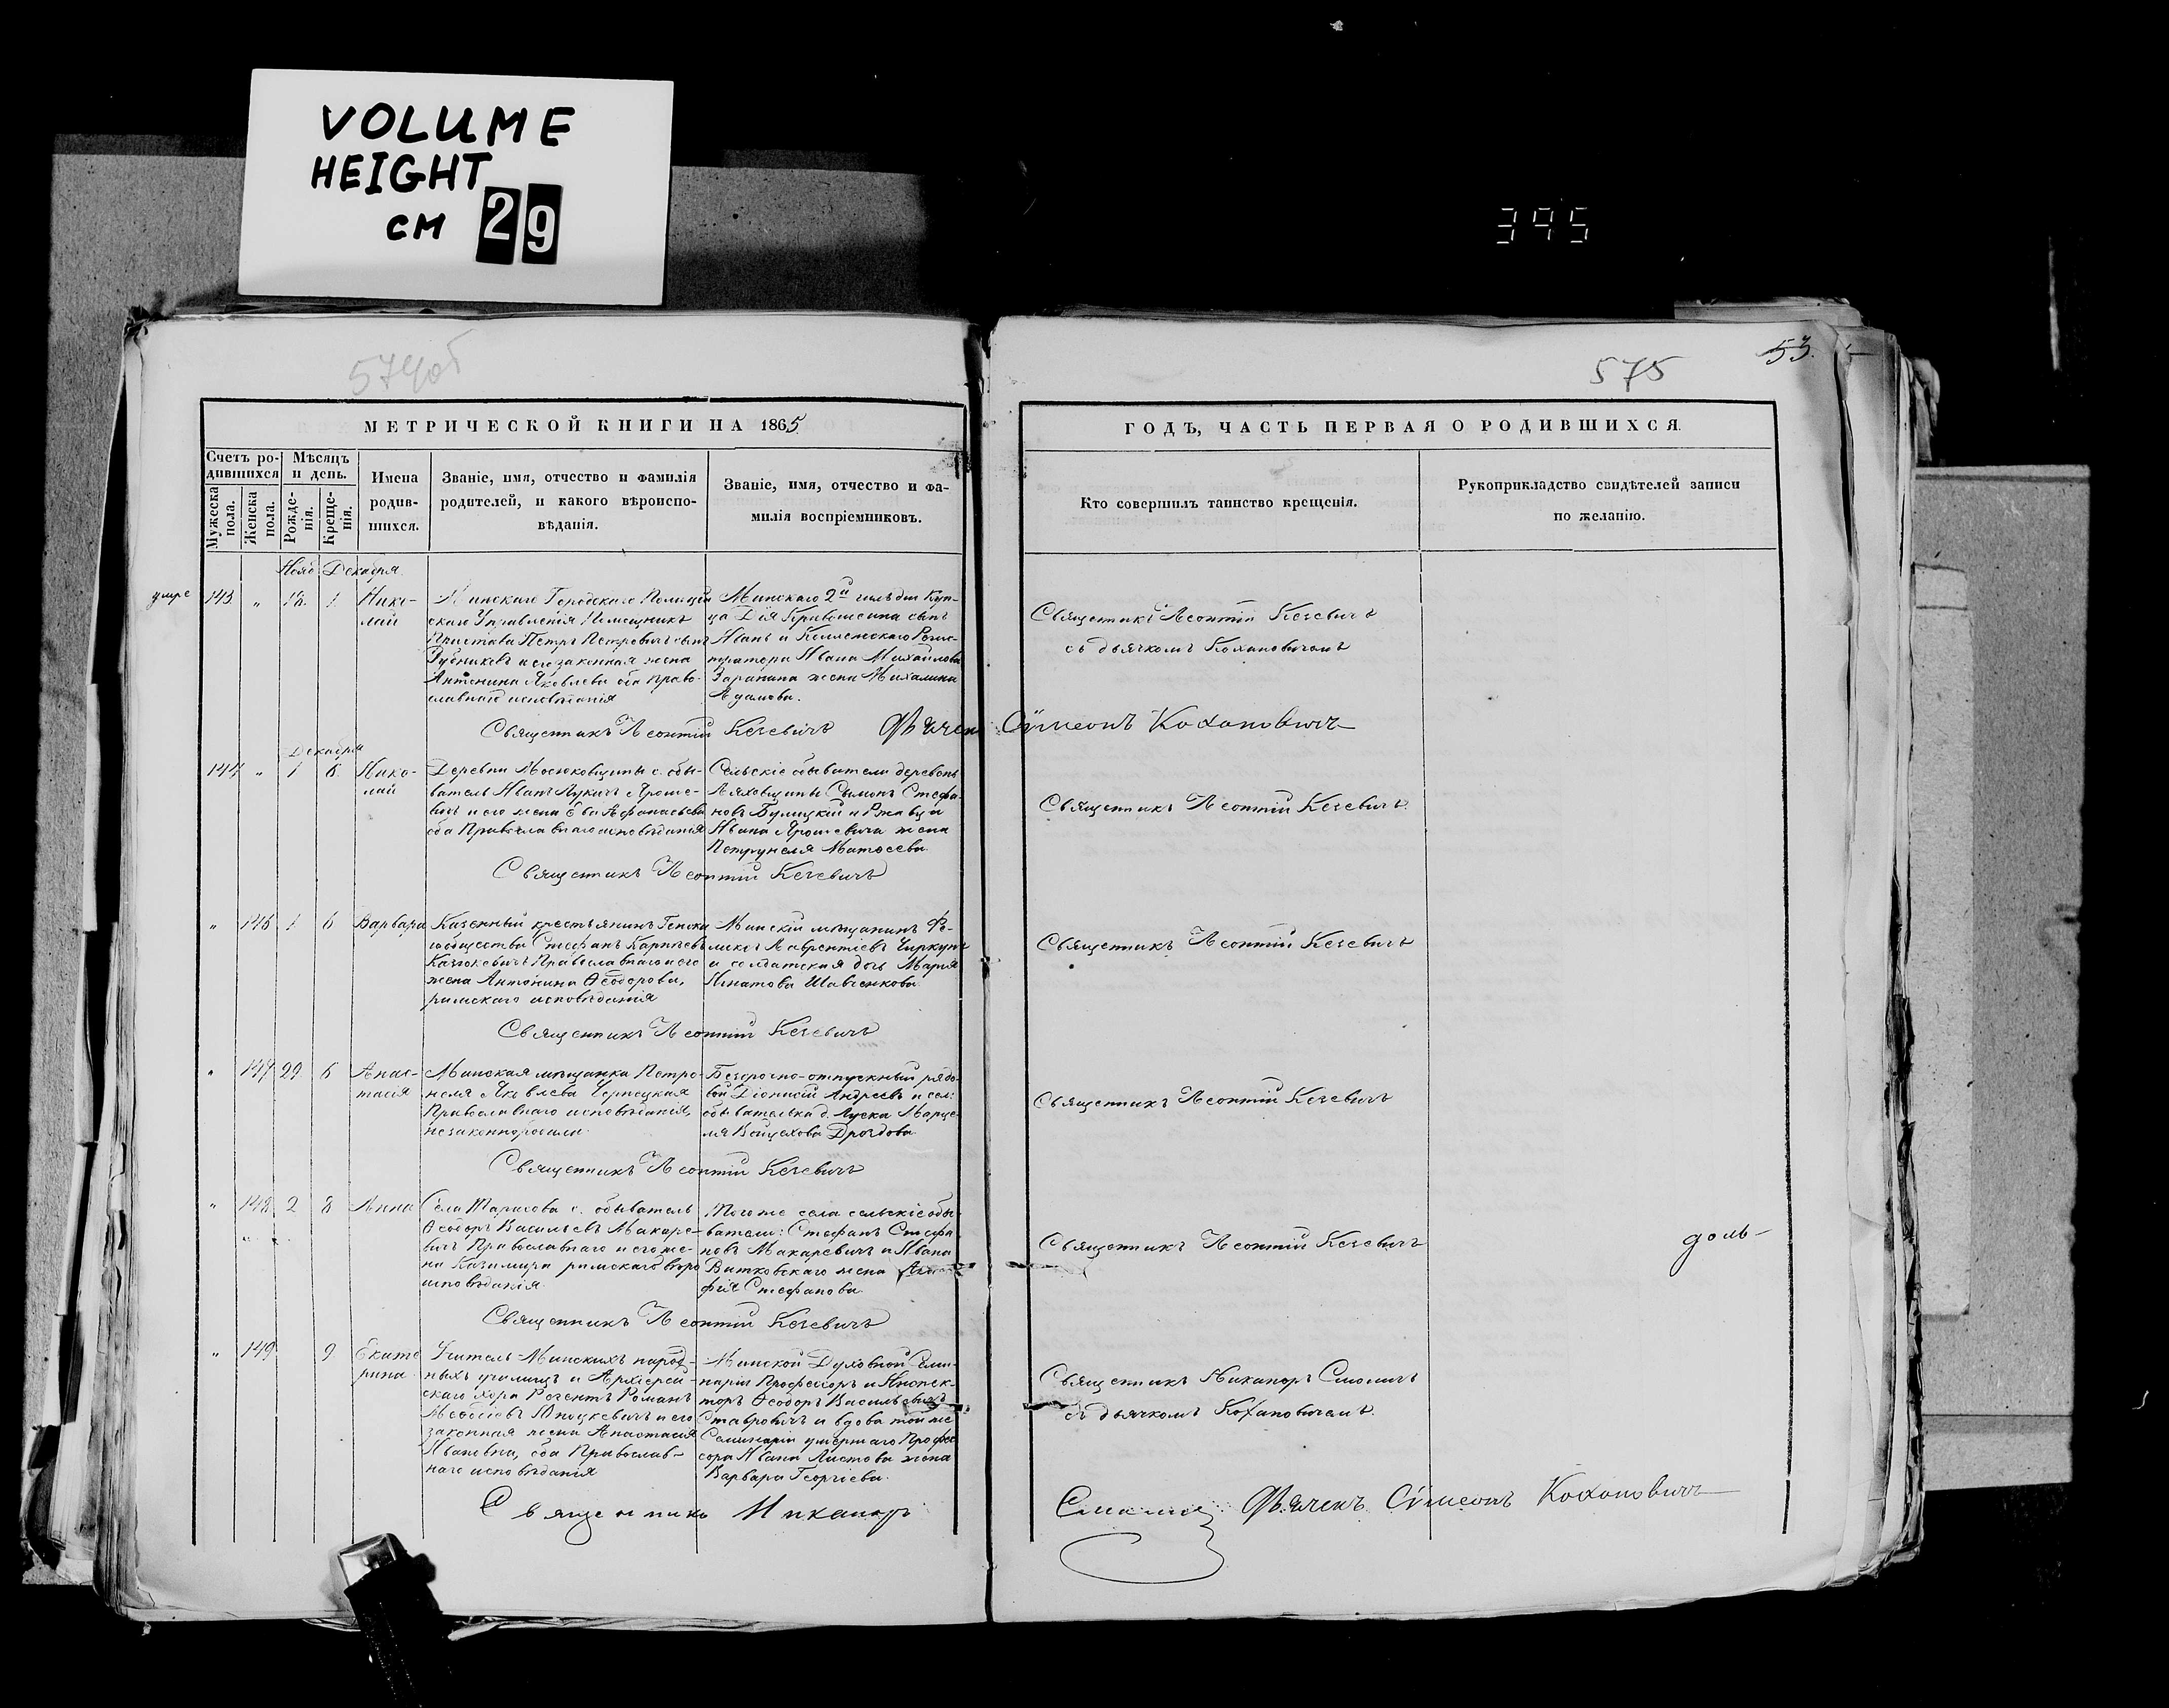 VOLUME
HEIGHT
CM 29
395
574об
575
53.
МЕТРИЧЕСКОЙ КНИГИ НА 1865
ГОДЪ, ЧАСТЬ ПЕРВАЯ О РОДИВШИХСЯ.
Счетъ ро-
дившихся
Мужеска пола.
Женска пола.
Мѣсяцъ
и день.
Рожде-
нія.
Креще-
нія.
Имена
родив-
шихся.
Званіе, имя, отчество и фамилія
родителей, и какого вѣроиспо-
вѣданія.
Званіе, имя, отчество и фа-
милія воспріемниковъ.
Кто совершилъ таинство крещенія.
Рукоприкладство свидѣтелей записи
по желанію.
Декабря
умре
143 " 18. 1. Нико-
лай
Минскаго Городскаго Полицей
скаго Управленія Помощникъ
Пристава Петръ Петровичъ сынъ
и его законная жена
Антонина Яковлева оба право-
славнаго исповѣданія
Минскаго 2й гильдіи Куп-
ца сынъ
Иванъ и Коллежскаго Регис-
тратора Ивана Михайлова
жена Михалина
Адамова.
Священникъ Леонтій Кечевичъ
съ дьячкомъ Кохановичемъ
Священникъ Леонтій Кечевичъ Дьячекъ Сѵмеонъ Кохановичъ
Декабря
144 " 1 6. Нико-
лай
Деревни с. обы-
ватель Иванъ Лукичъ Яроше-
вичъ и его жена Ева Афанасьева
оба Православнаго исповѣданія
Сельскіе обыватели деревень
Ляховщины Сымонъ Стефа-
новъ Булицкій и Ржавца
Ивана Ярошевича жена
Петрунеля Матѳеева.
Священникъ Леонтій Кечевичъ
Священникъ Леонтій Кечевичъ
" 146 1 6 Варвара
Казенный крестьянинъ
общества Стефанъ Карповъ
Казюкевичъ Православнаго и его
жена Антонина Ѳеодорова,
римскаго исповѣданія
Минскій мѣщанинъ Фе-
ликсъ Лаврентіевъ Чиркунъ
и солдатская дочь Марія
Игнатова Шавченкова.
Священникъ Леонтій Кечевичъ
Священникъ Леонтій Кечевичъ
" 147 29 6 Анас-
тасія
Минская мѣщанка Петро-
неля Яковлева Чернецкая
Православнаго исповѣданія,
незаконнорожд.
Безсрочно-отпускный рядо-
вой Діонисій Андреевъ и сель.
обывателька д. Луска Марце-
ля Войцехова Дроздова
Священникъ Леонтій Кечевичъ
Священникъ Леонтій Кечевичъ
" 148 2 8 Анна
Села Тарасова с. обыватель
Ѳеодоръ Васильевъ Макаре-
вичъ Православнаго и его же-
на Казимира римскаго вѣро
исповѣданія.
Тогоже села сельскіе обы-
ватели: Стефанъ Стефа-
новъ Макаревичъ и Ивана
Витковскаго жена
фія Стефанова.
Священникъ Леонтій Кечевичъ
Священникъ Леонтій Кечевичъ
доль-
" 149 9 Екате
рина
Учитель Минскихъ народ-
ныхъ училищъ и Архіерей-
скаго хора Регентъ Романъ
Меѳодіевъ и его
законная жена Анастасія
Ивановна, оба Православ-
наго исповѣданія
Минской Духовной Семи-
наріи Профессоръ и Инспек-
торъ Ѳеодоръ Васильевичъ
Ставровичъ и вдова той же
Семинаріи умершаго Профес
сора Ивана Листова жена
Варвара Георгіева.
Священникъ Никаноръ Смоличъ
съ дьячкомъ Кохановичемъ.
Священникъ Никаноръ Смоличъ Дьячекъ Сѵмеонъ Кохановичъ